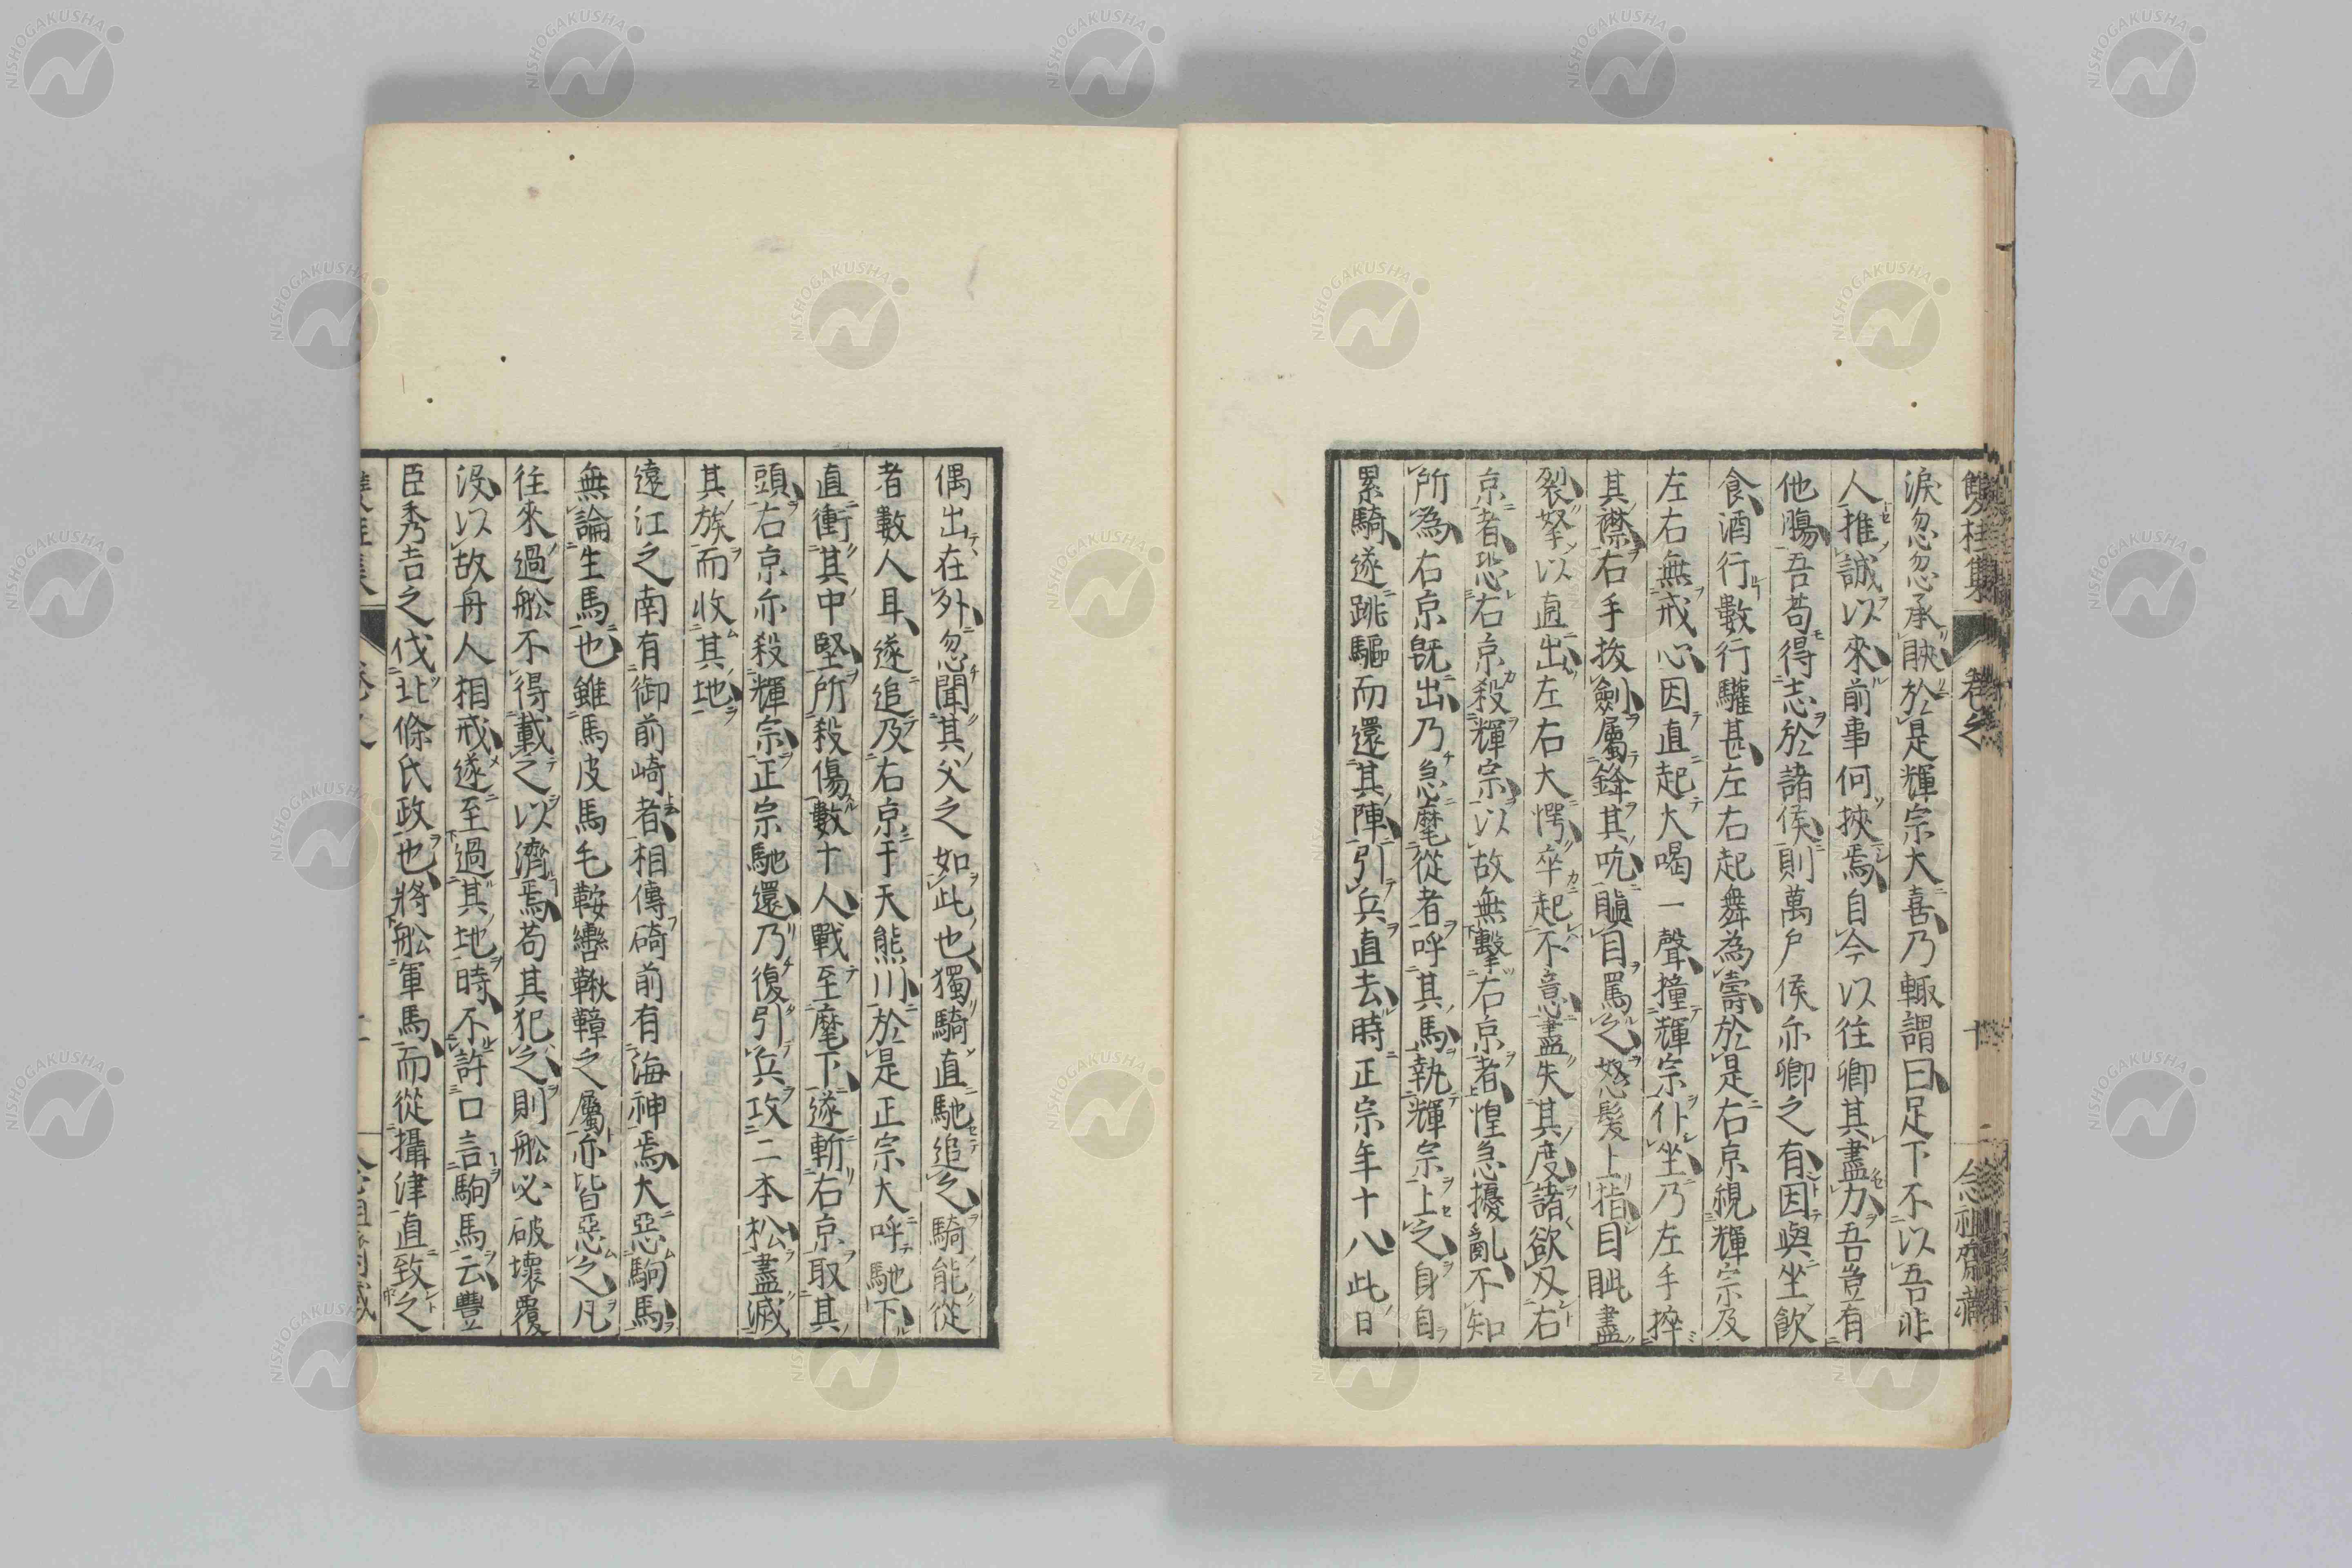 雙桂集 卷之 十
淚忽忽承睫於是輝宗大喜乃輙謂曰足下不以吾非
人推誠以來前事何挾焉自今以往卿其盡力吾豈有
他膓吾苟得志於諸侯則萬戶侯亦卿之有因與坐飲
食酒行數行驩甚左右起舞為壽於是右京視輝宗及
左右無戒心因直起大喝一聲撞輝宗仆坐乃左手捽
其襟右手拔劍屬鋒其吭瞋目罵之怒髮上指目眦盡
裂拏以直出左右大愕卒起不意盡失其度諸欲及右
京者恐右京殺輝宗以故無擊右京者惶急擾亂不知
所為右京既出乃急麾從者呼其馬執輝宗上之身自
累騎遂跳驅而還其陣引兵直去時正宗年十八此日
偶出在外忽聞其父之如此也獨騎直馳追之騎能從
者數人耳遂追及右京于天熊川於是正宗大呼馳下
直衝其中堅所殺傷數十人戰至麾下遂斬右京取其
頭右京亦殺輝宗正宗馳還乃復引兵攻二本松盡滅
其族而收其地
遠江之南有御前崎者相傳碕前有海神焉大惡駒馬
無論生馬也雖馬皮馬毛鞍轡鞦鞾之屬亦皆惡之凡
往來過舩不得載之以濟焉苟其犯之則舩必破壞覆
沒以故舟人相戒遂至過其地時不許口言駒馬云豐
臣秀吉之伐北條氏政也將舩軍馬而從攝津直致之
NISHOGAKUSHA